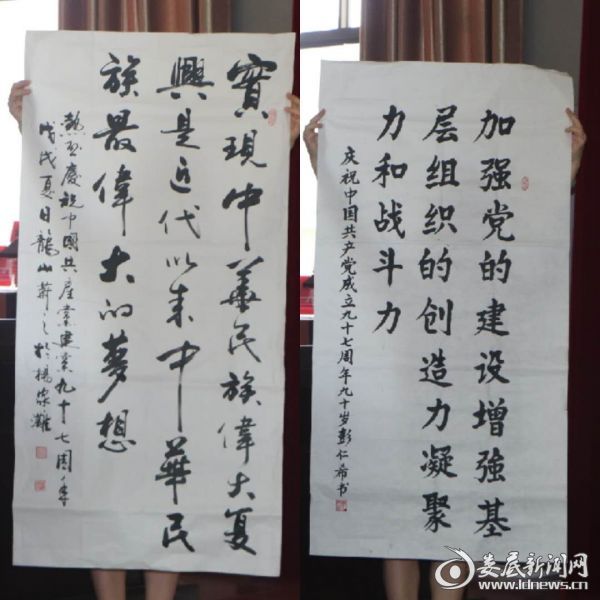 實現中華民族偉大复
興是近代以来中華民
族最偉大的夢想
熱烈慶祝中國共産黨建黨九十七周年
戊戌夏日龍山於楊家灘
加强党的建设增强基
层组织的创造力凝聚
力和战斗力
庆祝中国共产党成立九十七周年九十岁彭仁希书
娄底新闻网
www.ldnews.cn